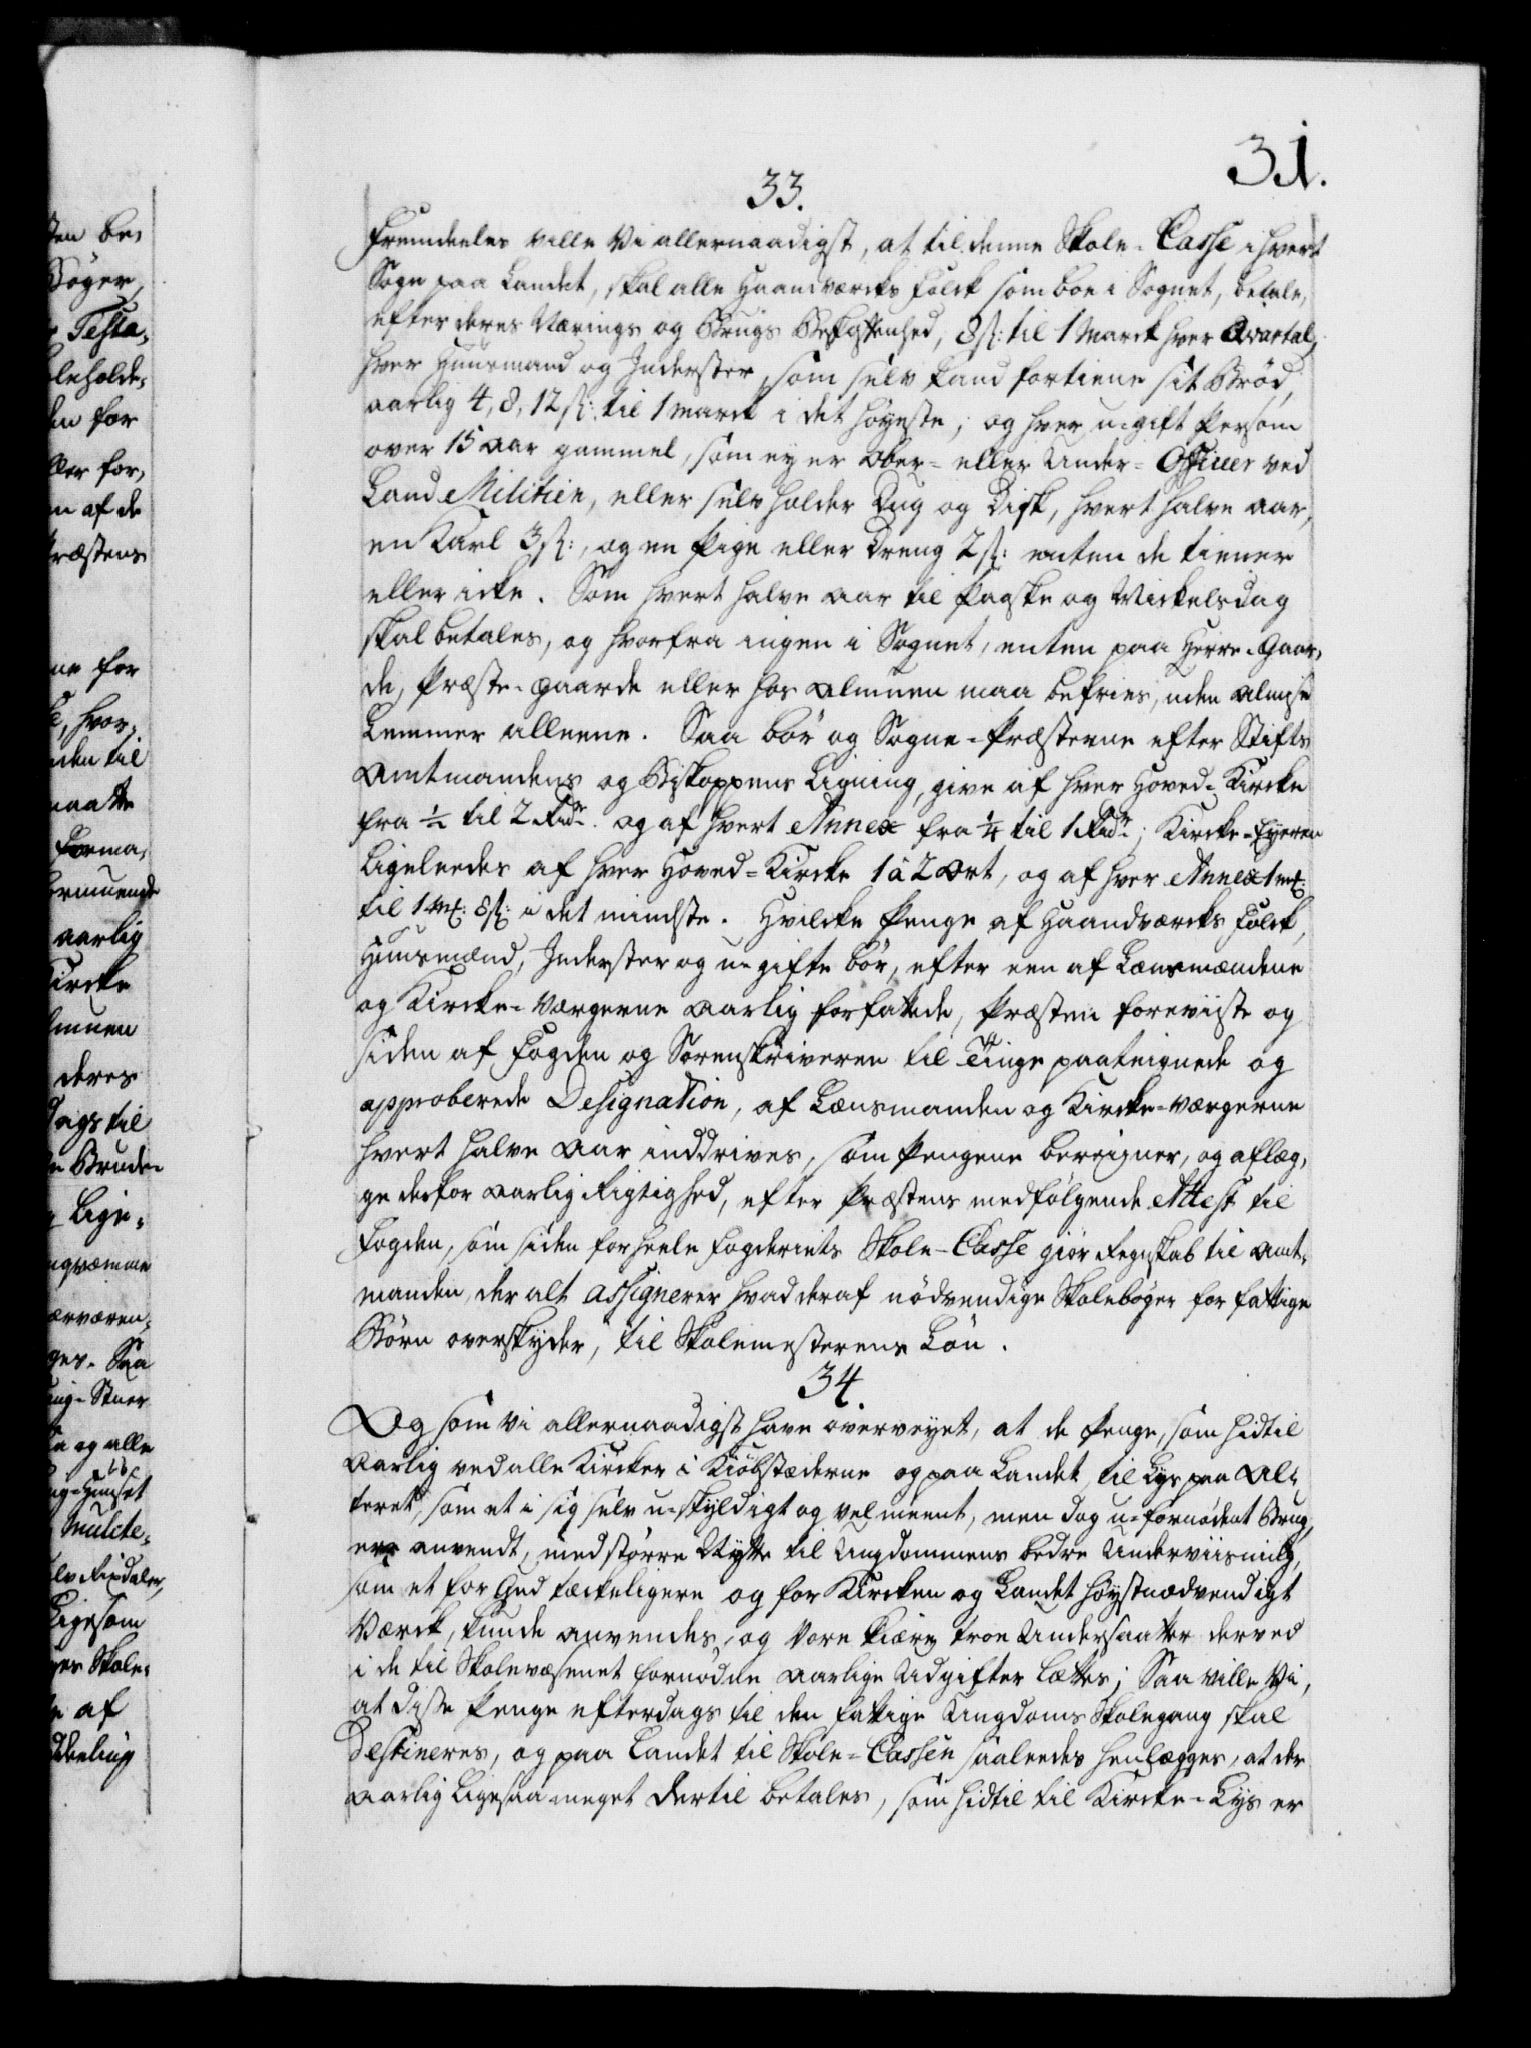 31.
33.
Fremdeeles ville Vi allernaadigst, at til denne Skole-Casse i hvert
Sogn paa Landet, skal alle Haandværcks Folck som boe i Sognet, betale,
efter deres Nærings og Brugs Beskaffenhed, 8 s: til 1 Marck hver Qvartal,
hver Huusmand og Inderster, som selv kand fortiene sit Brød,
aarlig 4, 8, 12 s: til 1 marck i det høyeste; og hver u-gift Person
over 15 Aar gammel, som ey er Ober- eller Under-Officer ved
Land Militien, eller selv holder Dug og Disk, hvert halve Aar,
en Karl 3 s:, og en Pige eller Dreng 2 s: enten de tiener
eller icke. Som hvert halve Aar til Paaske og Mickelsdag
skal betales, og hvorfra ingen i Sognet, enten paa Herre-Gaar,
de, Præste-Gaarde eller hos Almuen maa befries, uden Almisse
Lemmer alleene. Saa bør og Sogne-Præsterne efter Stifts
Amtmandens og Biskoppens Ligning, give af hver Hoved-Kircke
fra ½ til 2 Rdr. og af hvert Annex fra ¼ til 1 Rdr; Kircke-Eyeren
Ligeleedes af hver Hoved-Kircke 1 à 2 Ort, og af hver Annex 1 mk:
til 1 mk: 8 s: i det mindste. Hvilcke Penge af Haandværcks Folck,
Huusmænd, Inderster og u-gifte bør, efter een af Lænsmændene
og Kircke-Værgerne Aarlig forfattede, Præsten foreviiste og
siden af Fogden og Sorenskriveren til Tinge paateignede og
approberede Designation, af Lænsmanden og Kircke-værgerne
hvert halve Aar inddrives, som Pengene bereigner, og aflæg,
ge derfor Aarlig Rigtighed, efter Præstens medfølgende Attest til
Fogden, som siden for heele Fogderiets Skole-Casse giør Regnskab til Amt,
manden, der alt assignerer hvad deraf nødvendige Skolebøger for fattige
Børn overskyder, til Skolemesterens Løn.
34.
Og som Vi allernaadigst have overveyet, at de Penge, som hidtil
Aarlig ved alle Kircker i Kiøbstæderne og paa Landet til Lys paa Al,
teret, som et i sig selv u-skyldigt og vel meent, men dog u-fornødent Brug,
ere anvendt, med større Nytte til Ungdommens bedre Underviisning,
som et for Gud tæckeligere og for Kircken og Landet høystnødvendigt
Værck, kunde anvendes, og Vore kiære troe Undersaatter derved
i de til Skolevæsenet fornødne Aarlige Udgifter lættes; Saa ville Vi,
at disse Penge efterdags til den fattige Ungdoms Skolegang skal
Destineres, og paa Landet til Skole-Cassen saaleedes henlægges, at der
Aarlig Ligesaa meget dertil betales, som hidtil til Kircke-Lys er